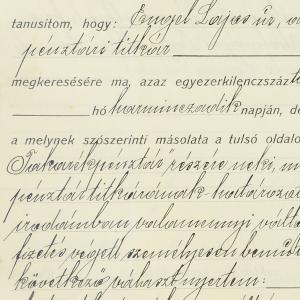 tanusitom, hogy: Engel Lajos úr, a
pénztári titkár
megkeresésére ma, azaz egyezerkilenczszáz
hó harminczadik napján, de
a melynek szószerinti másolata a tulsó oldalo
Takarékpénztár részére neki, m
pénztár titkárának határoza
irodámban valamennyi vált
fizetés végett személyesen bemut
következő választ nyertem: